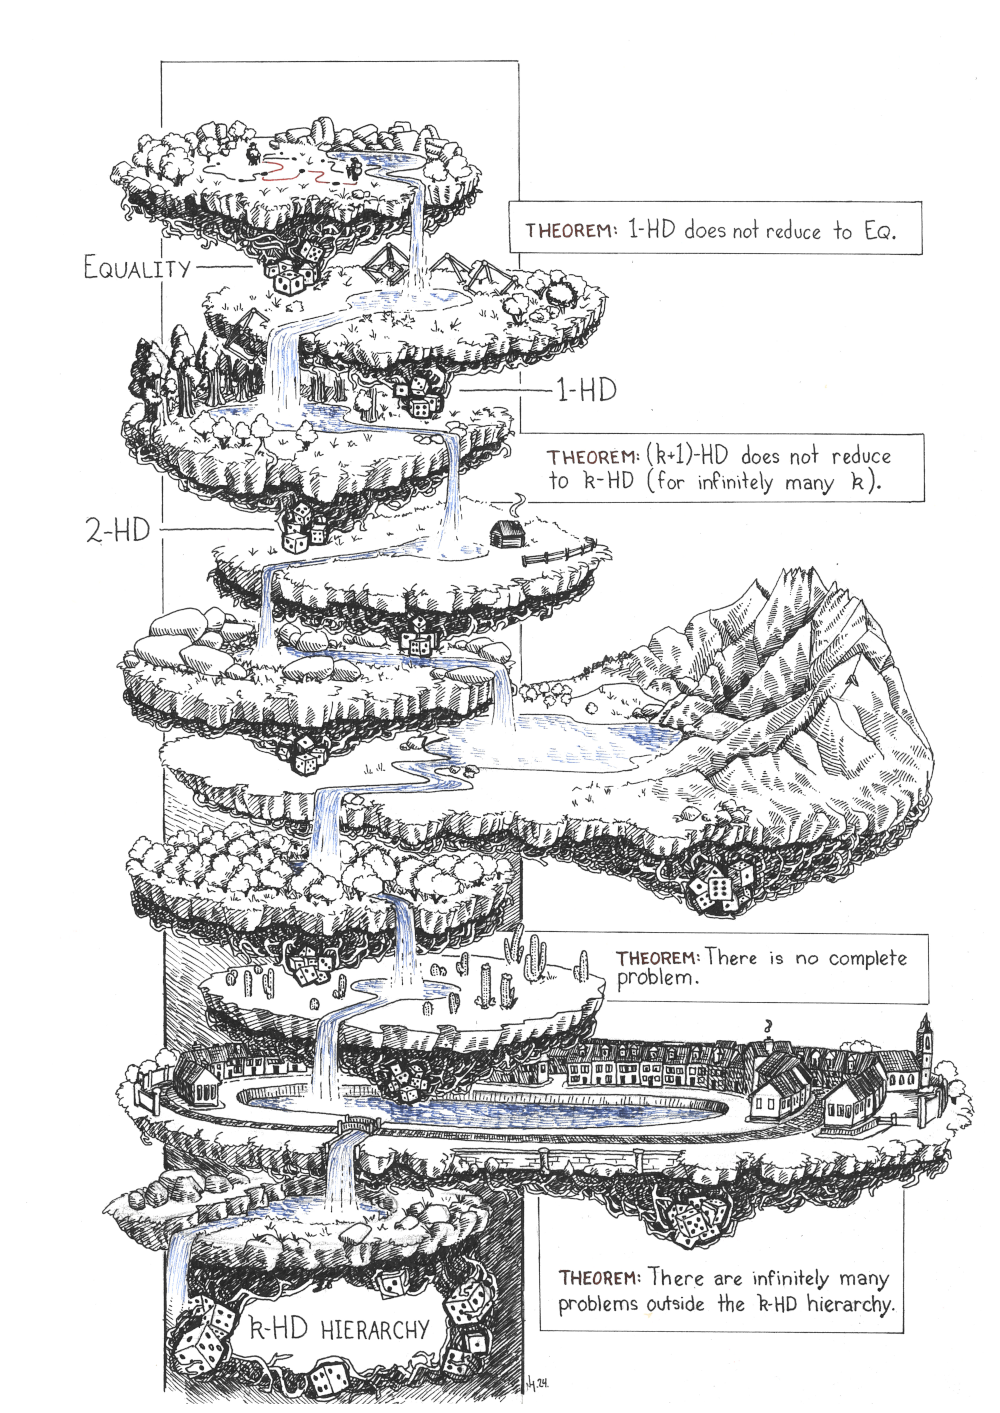 THEOREM: 1-HD does not reduce to EQ.
EQUALITY
1-HD
THEOREM: (k+1)-HD does not reduce
to k-HD (for infinitely many k).
2-HD
THEOREM: There is no complete
problem.
THEOREM: There are infinitely many
problems outside the k-HD hierarchy.
k-HD HIERARCHY